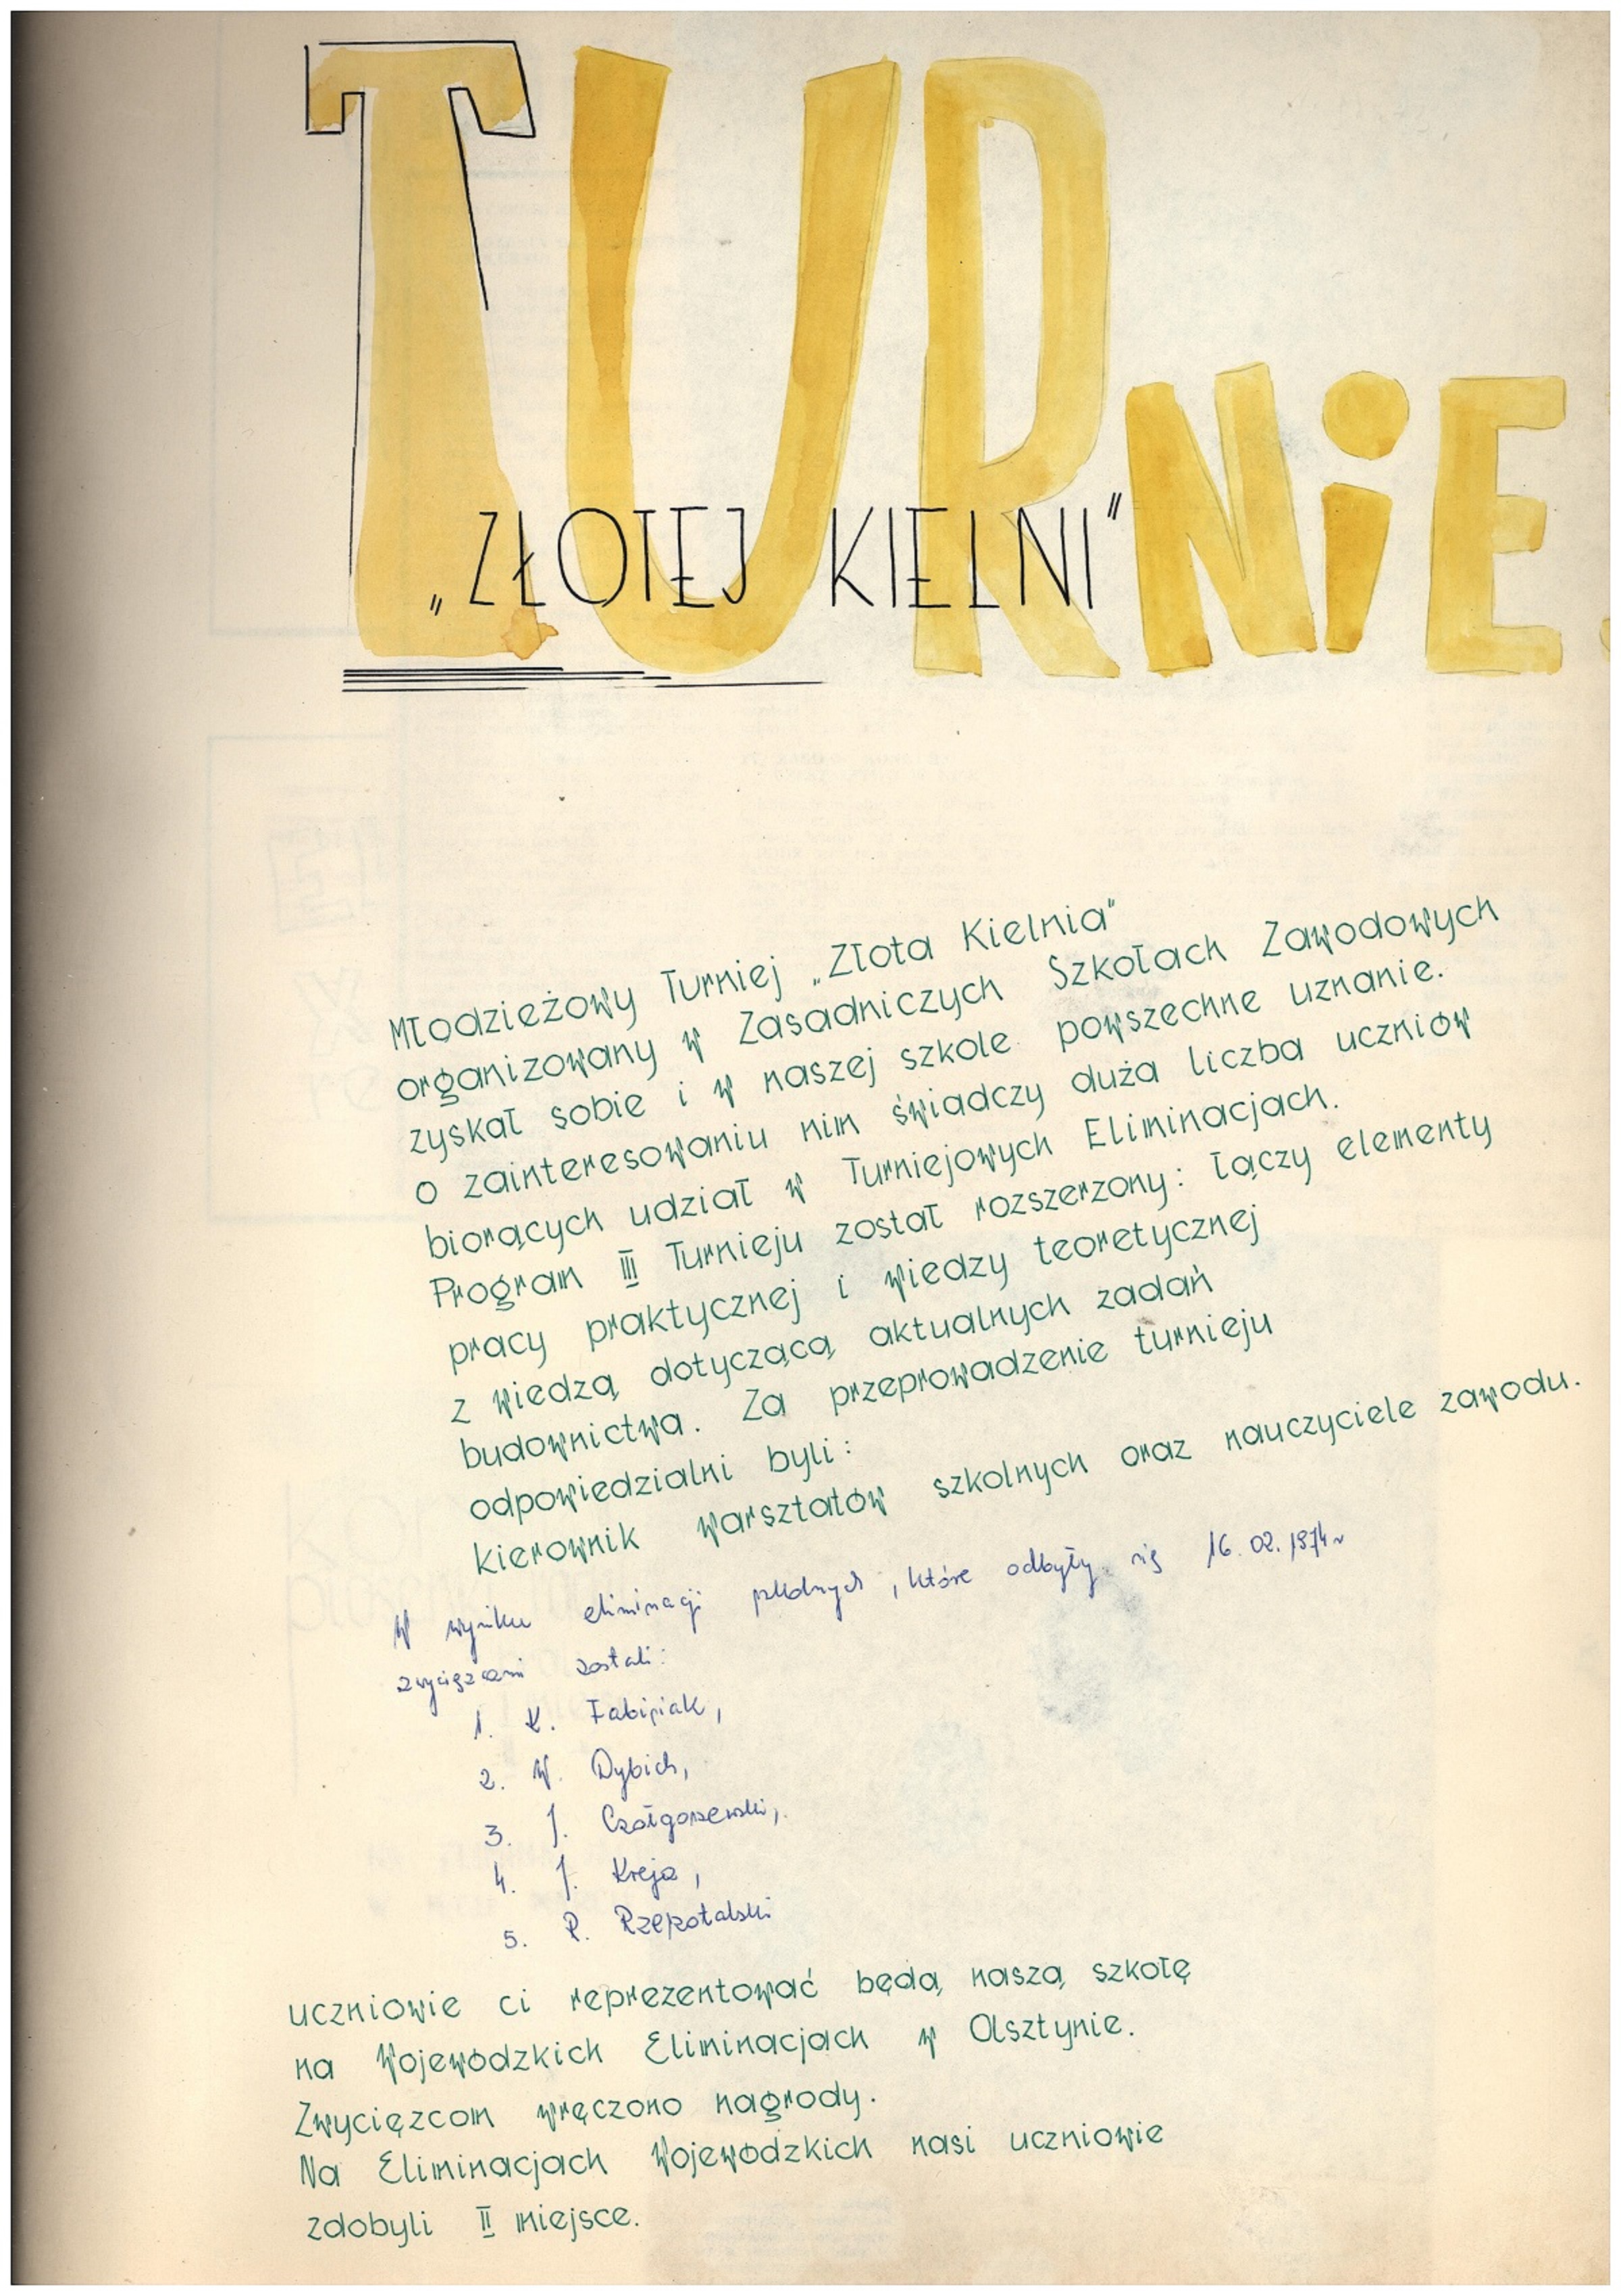 TURNIE
„ZŁOTEJ KIELNI"
Młodzieżowy Turniej „Złota Kielnia"
organizowany w Zasadniczych Szkołach Zawodowych
zyskał sobie i w naszej szkole powszechne uznanie.
O zainteresowaniu nim świadczy duża liczba uczniów
biorących udział w Turniejowych Eliminacjach.
Program III Turnieju został rozszerzony: łączy elementy
pracy praktycznej i wiedzy teoretycznej
z wiedzą dotyczącą aktualnych zadań
budownictwa. Za przeprowadzenie turnieju
odpowiedzialni byli:
kierownik warsztatów szkolnych oraz nauczyciele zawodu.
W wyniku eliminacji szkolnych, które odbyły się 16.02.1974 r
zwycięzcami zostali:
1. K. Fabisiak,
2. W. Dybich,
3. J. Czołgoszewski,
4. J. Kreja,
5. R. Rzepotalski
uczniowie ci reprezentować będą naszą szkołę
na Wojewódzkich Eliminacjach w Olsztynie.
Zwycięzcom wręczono nagrody.
Na Eliminacjach Wojewódzkich nasi uczniowie
zdobyli II miejsce.